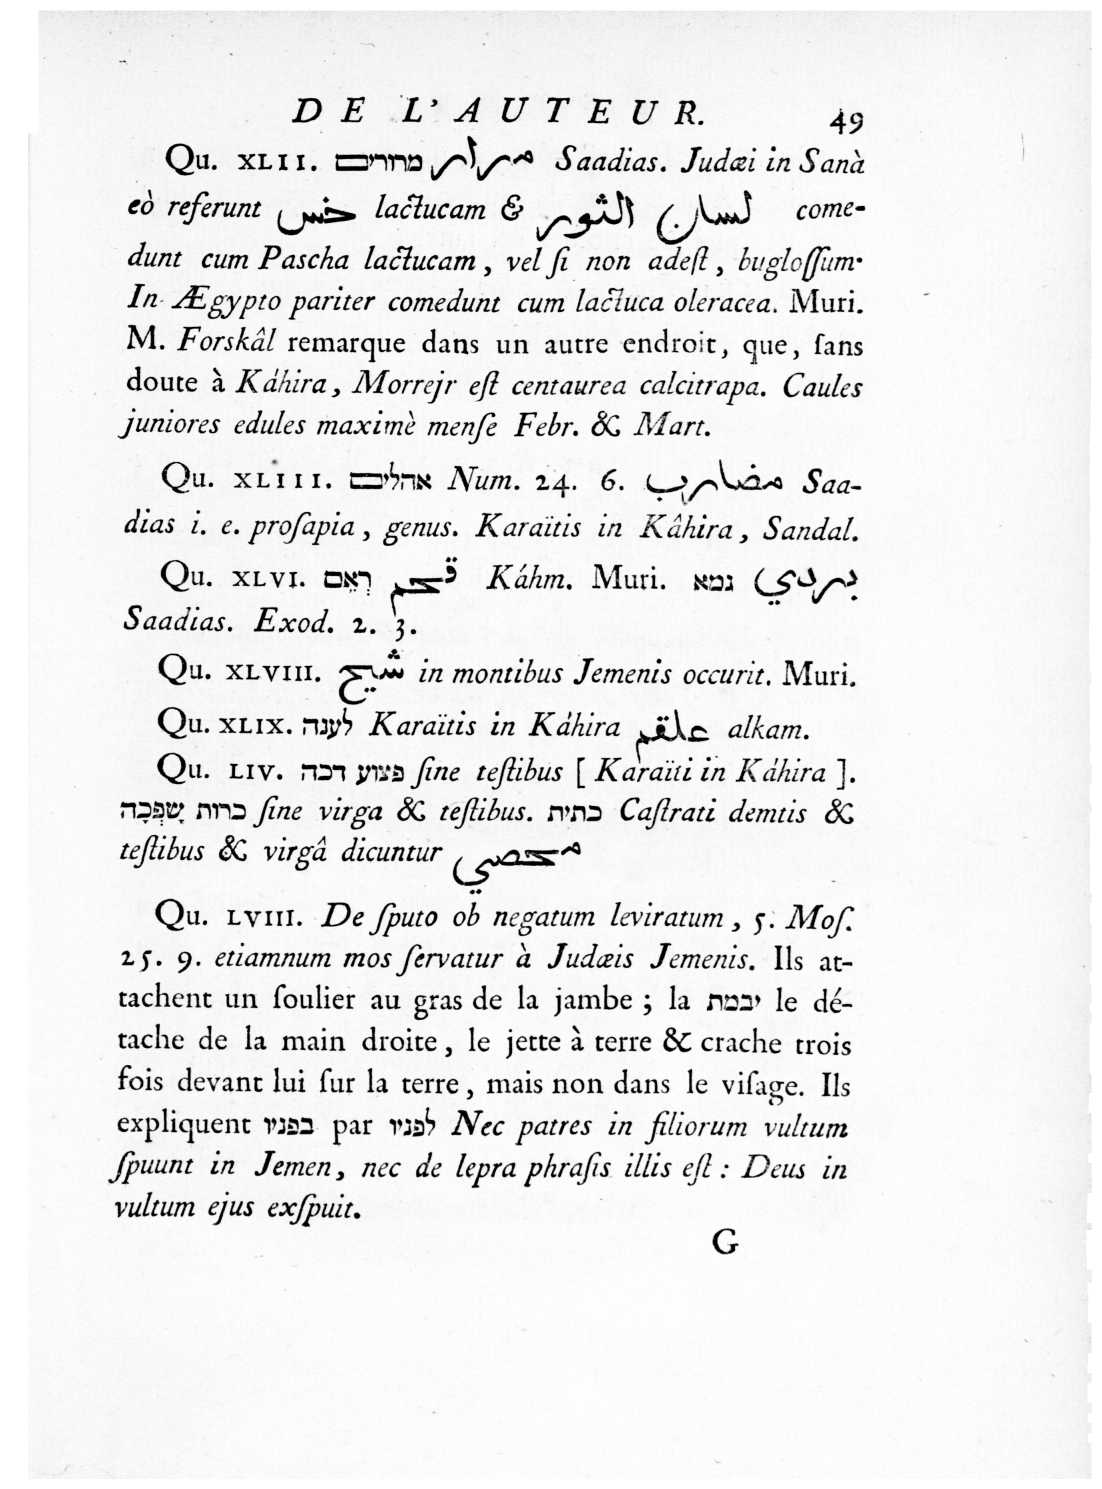 DE L'AUTEUR. 49
Qu. XLII. מרורים مرار Saadias. Judæi in Sanà
eò referunt خس lactucam & لسان الثور come-
dunt cum Pascha lactucam, vel ſi non adeſt, bugloſſum.
In Ægypto pariter comedunt cum lactuca oleracea. Muri.
M. Forskâl remarque dans un autre endroit, que, ſans
doute à Káhira, Morrejr eſt centaurea calcitrapa. Caules
juniores edules maximè menſe Febr. & Mart.
Qu. XLIII. אהלים Num. 24. 6. مضارب Saa-
dias i. e. proſapia, genus. Karaïtis in Kâhira, Sandal.
Qu. XLVI. רְאֵם قحم Káhm. Muri. גמא بردي
Saadias. Exod. 2. 3.
Qu. XLVIII. شيح in montibus Jemenis occurit. Muri.
Qu. XLIX. לענה Karaïtis in Káhira علقم alkam.
Qu. LIV. פצוע דכה ſine teſtibus [ Karaïti in Káhira ].
כרות שָׁפְכָה ſine virga & teſtibus. כתית Caſtrati demtis &
teſtibus & virgâ dicuntur مخصي
Qu. LVIII. De ſputo ob negatum leviratum, 5. Moſ.
25. 9. etiamnum mos ſervatur à Judæis Jemenis. Ils at-
tachent un ſoulier au gras de la jambe ; la יבמת le dé-
tache de la main droite, le jette à terre & crache trois
fois devant lui ſur la terre, mais non dans le viſage. Ils
expliquent בפניו par לפניו Nec patres in filiorum vultum
ſpuunt in Jemen, nec de lepra phraſis illis eſt : Deus in
vultum ejus exſpuit.
G